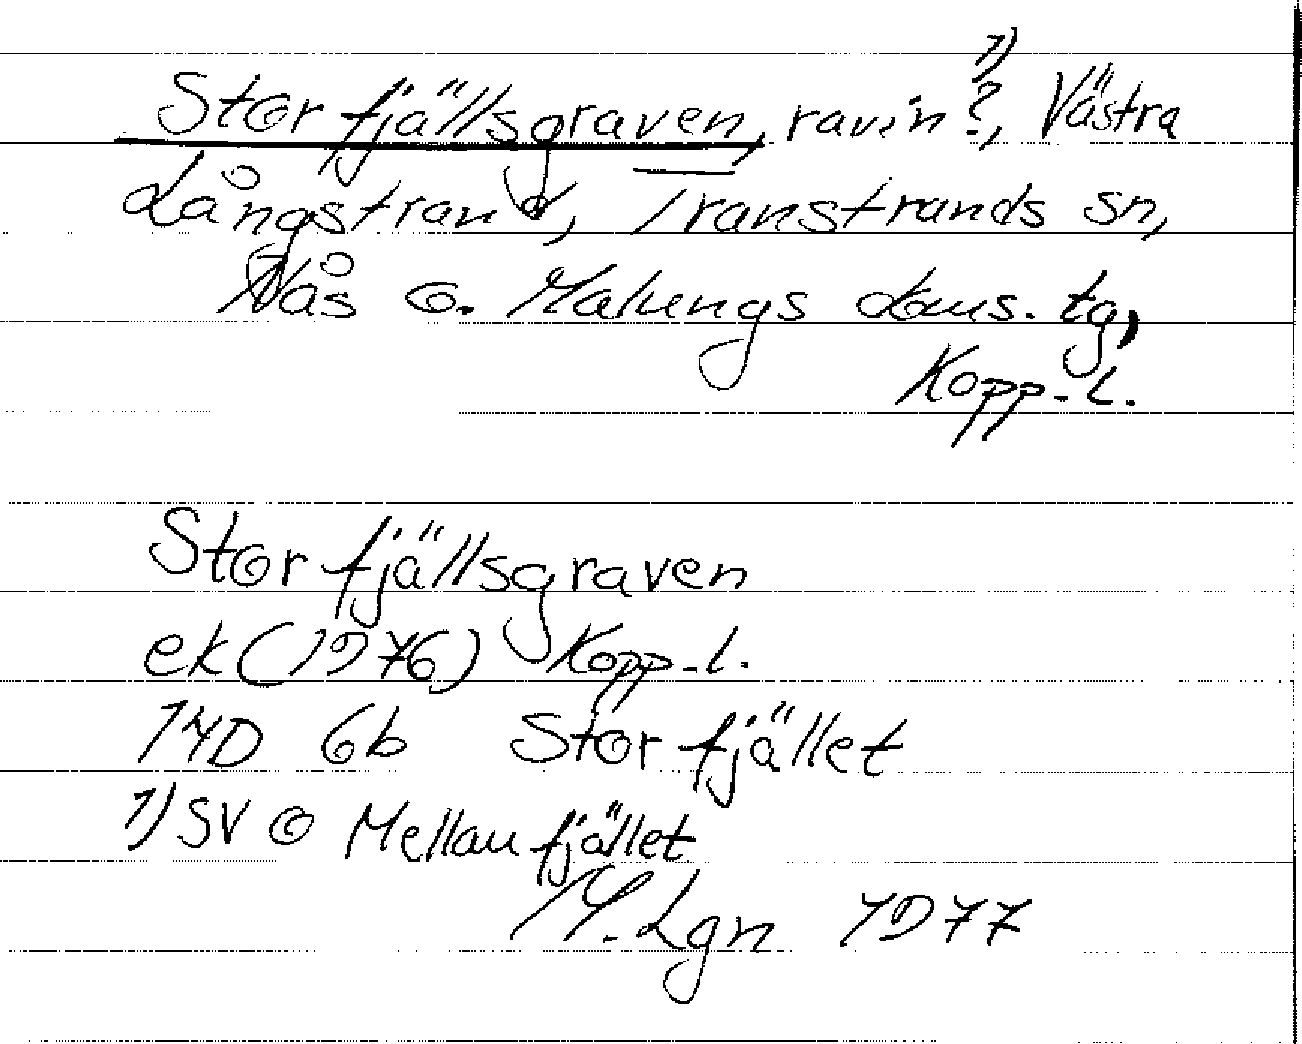 Storfjällsgraven, ravin?¹⁾, Västra
Långstrand, Transtrands sn,
Nås o. Malungs doms. tg,
Kopp.l.
Storfjällsgraven
ek (1976) Kopp.l.
14D 6b Storfjället
1) SV o Mellanfjället
Lgn 1977